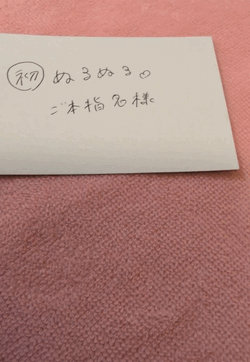 初 ぬるぬる。
ご本指名様